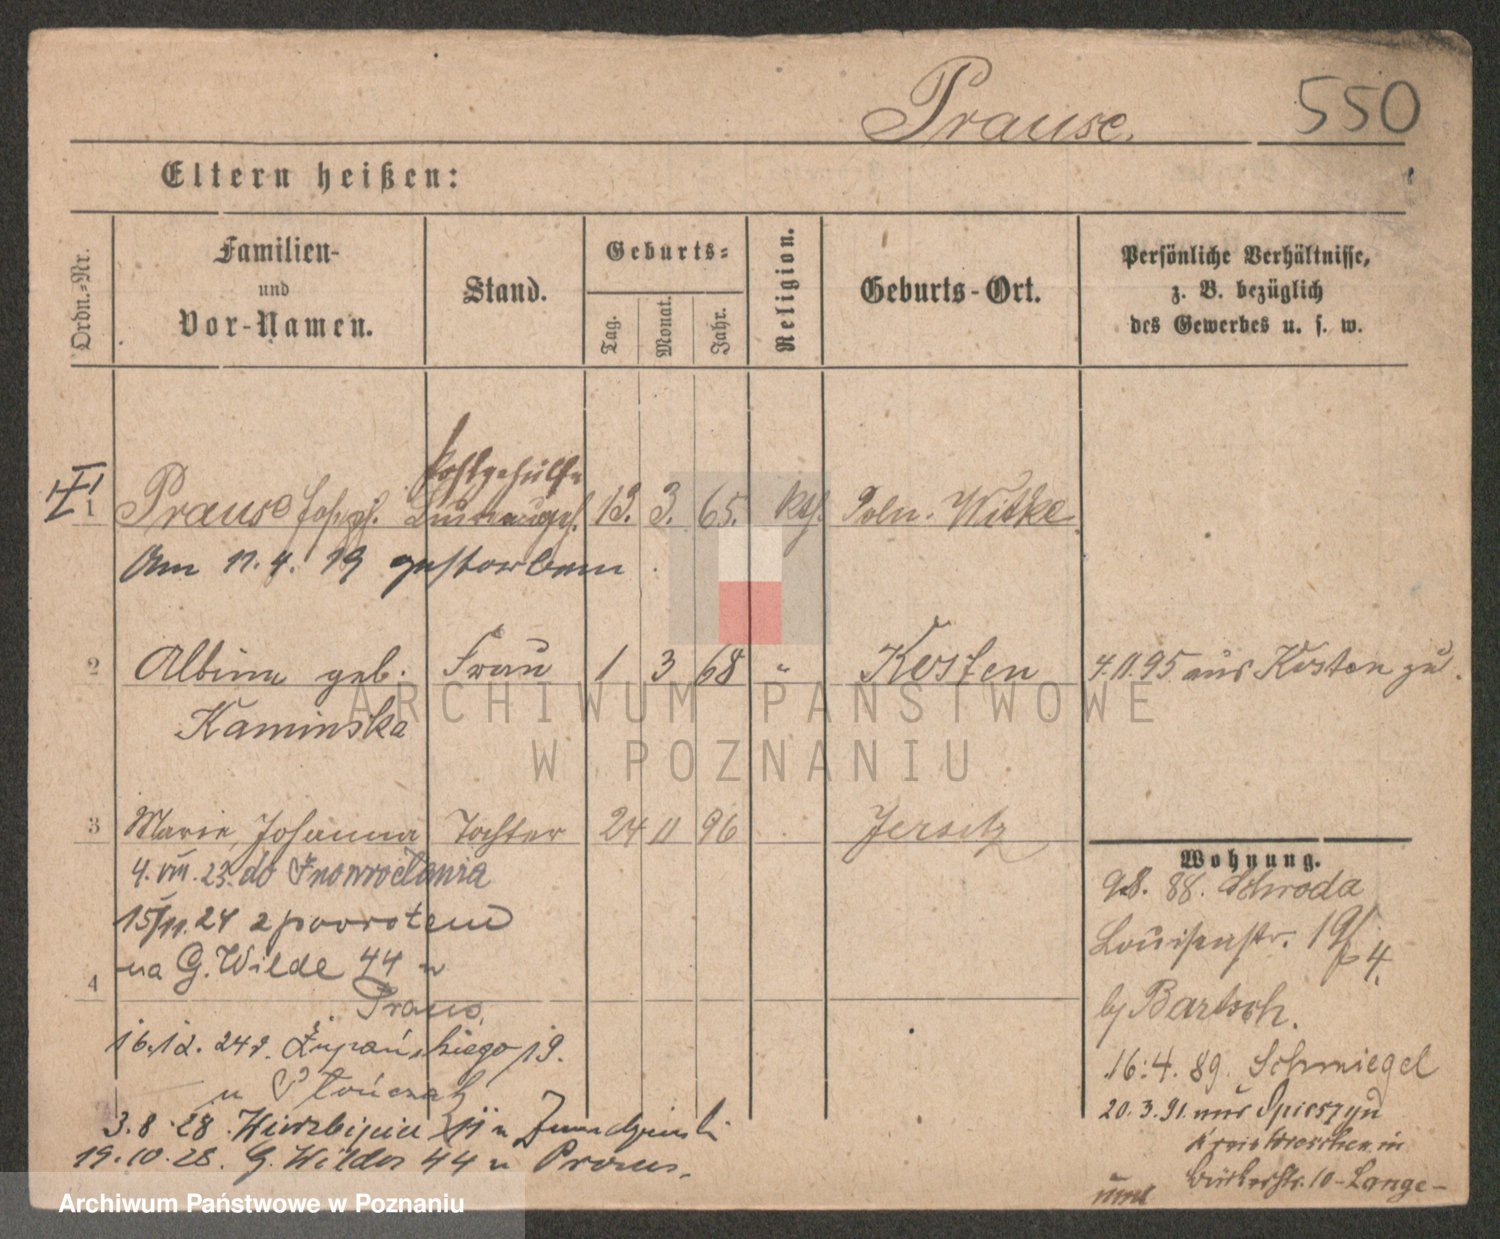 Prause.
550
Eltern heißen:
Ordn.-Nr.
Familien-
und
Vor-Namen.
Stand.
Geburts-
Tag.
Monat.
Jahr.
Religion.
Geburts-Ort.
Persönliche Verhältnisse,
z. B. bezüglich
des Gewerbes u. s. w.
Postgehülfe
1 Prause Joseph. 13. 3. 65. kth. Poln. Wilke
Am 11. 4. 19 gestorben
2 Albine geb. Frau 1 3 68 " Kosten 4.11.95 aus Kosten zu.
Kaminska
3 Marie, Johanna Tochter 24 11 96 Jersitz
4. VIII. 23. do Inowrocławia
15/11. 24 z powrotem
4 na G. Wilde 44 u
Praus.
16.12. 24 r. Żupańskiego 19.
u
3.8.28.
19.10.28. G. Wilda 44 u Praus.
Wohnung.
98. 88. Schroda
Louisenstr. 19/ 4.
by Bartsch.
16. 4. 89. Schmiegel
20. 3. 91. aus
Kreis Wreschen in
10 - Lange-
ARCHIWUM PAŃSTWOWE
W POZNANIU
Archiwum Państwowe w Poznaniu